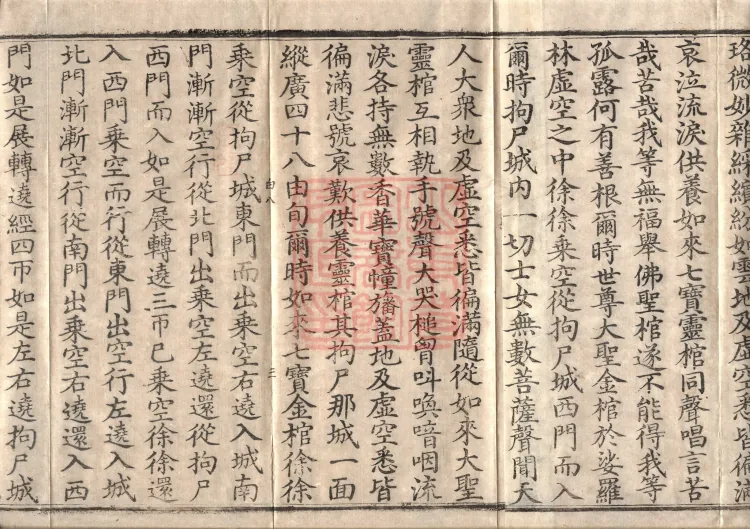 珞微妙雜綵繽紛如雲地及虛空悉皆徧滿
哀泣流淚供養如來七寶靈棺同聲唱言苦
哉苦哉我等無福舉佛聖棺遂不能得我等
孤露何有善根爾時世尊大聖金棺於娑羅
林虛空之中徐徐乘空從拘尸城西門而入
爾時拘尸城內一切士女無數菩薩聲聞天
人大衆地及虛空悉皆徧滿隨從如來大聖
靈棺互相執手號聲大哭槌胷叫喚喑咽流
淚各持無數香華寶幢旛蓋地及虛空悉皆
徧滿悲號哀歎供養靈棺其拘尸那城一面
縱廣四十八由旬爾時如來七寶金棺徐徐
白八 三
乘空從拘尸城東門而出乘空右遶入城南
門漸漸空行從北門出乘空左遶還從拘尸
西門而入如是展轉遶三帀已乘空徐徐還
入西門乘空而行從東門出空行左遶入城
北門漸漸空行從南門出乘空右遶還入西
門如是展轉遶經四帀如是左右遶拘尸城